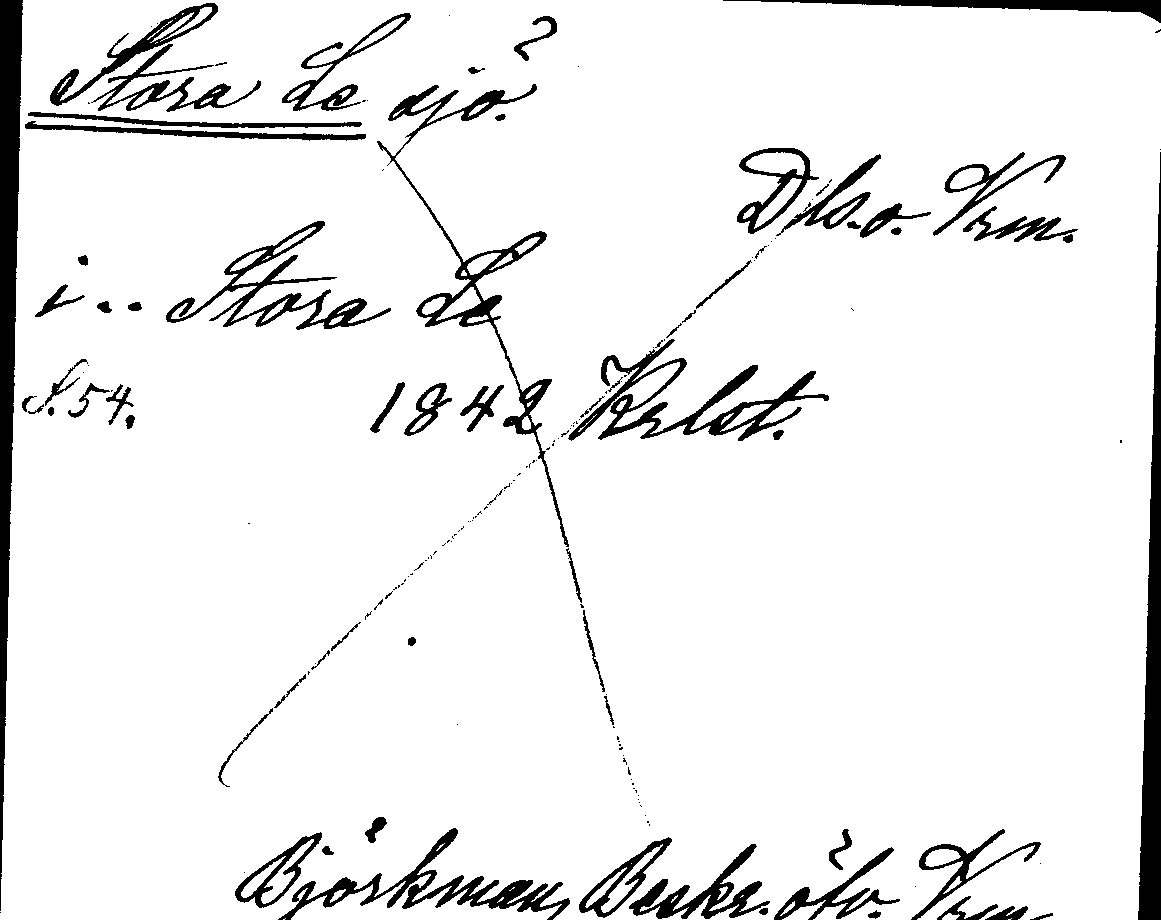 Stora Le sjö.
Dls. o. Vrm.
i.. Stora Le
S. 54. 1842 Krlst.
Björkman, Beskr. öfv. Vrm